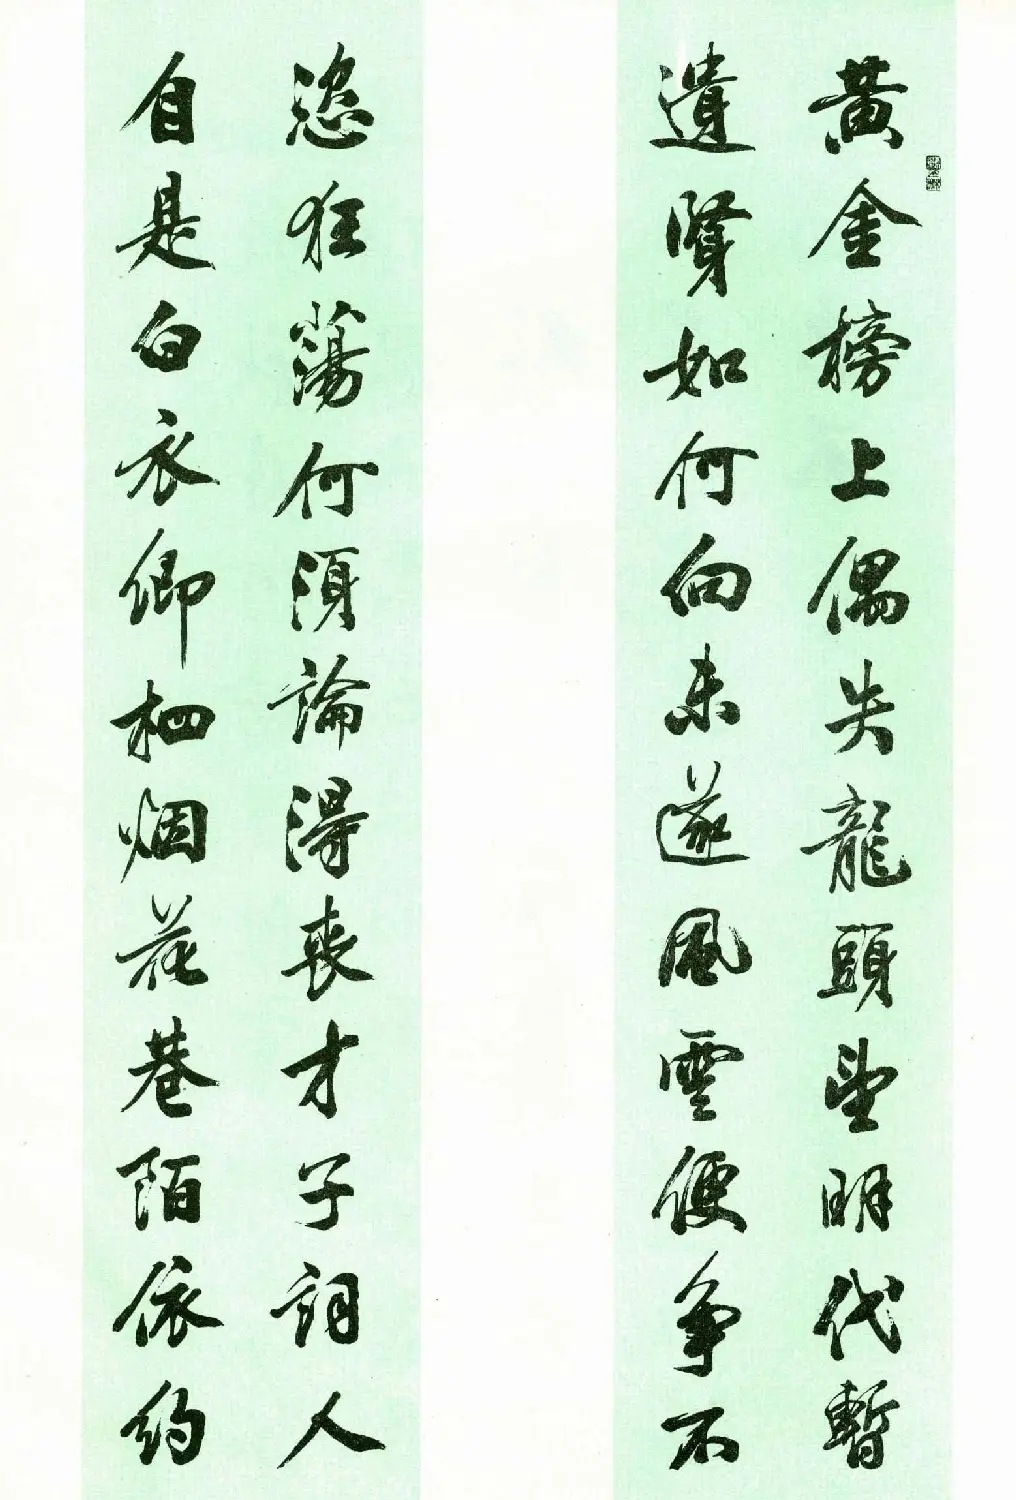 黃金榜上偶失龍頭望明代暫
遺賢如何向未遂風雲便争不
恣狂蕩何須論得喪才子詞人
自是白衣卿相烟花巷陌依約